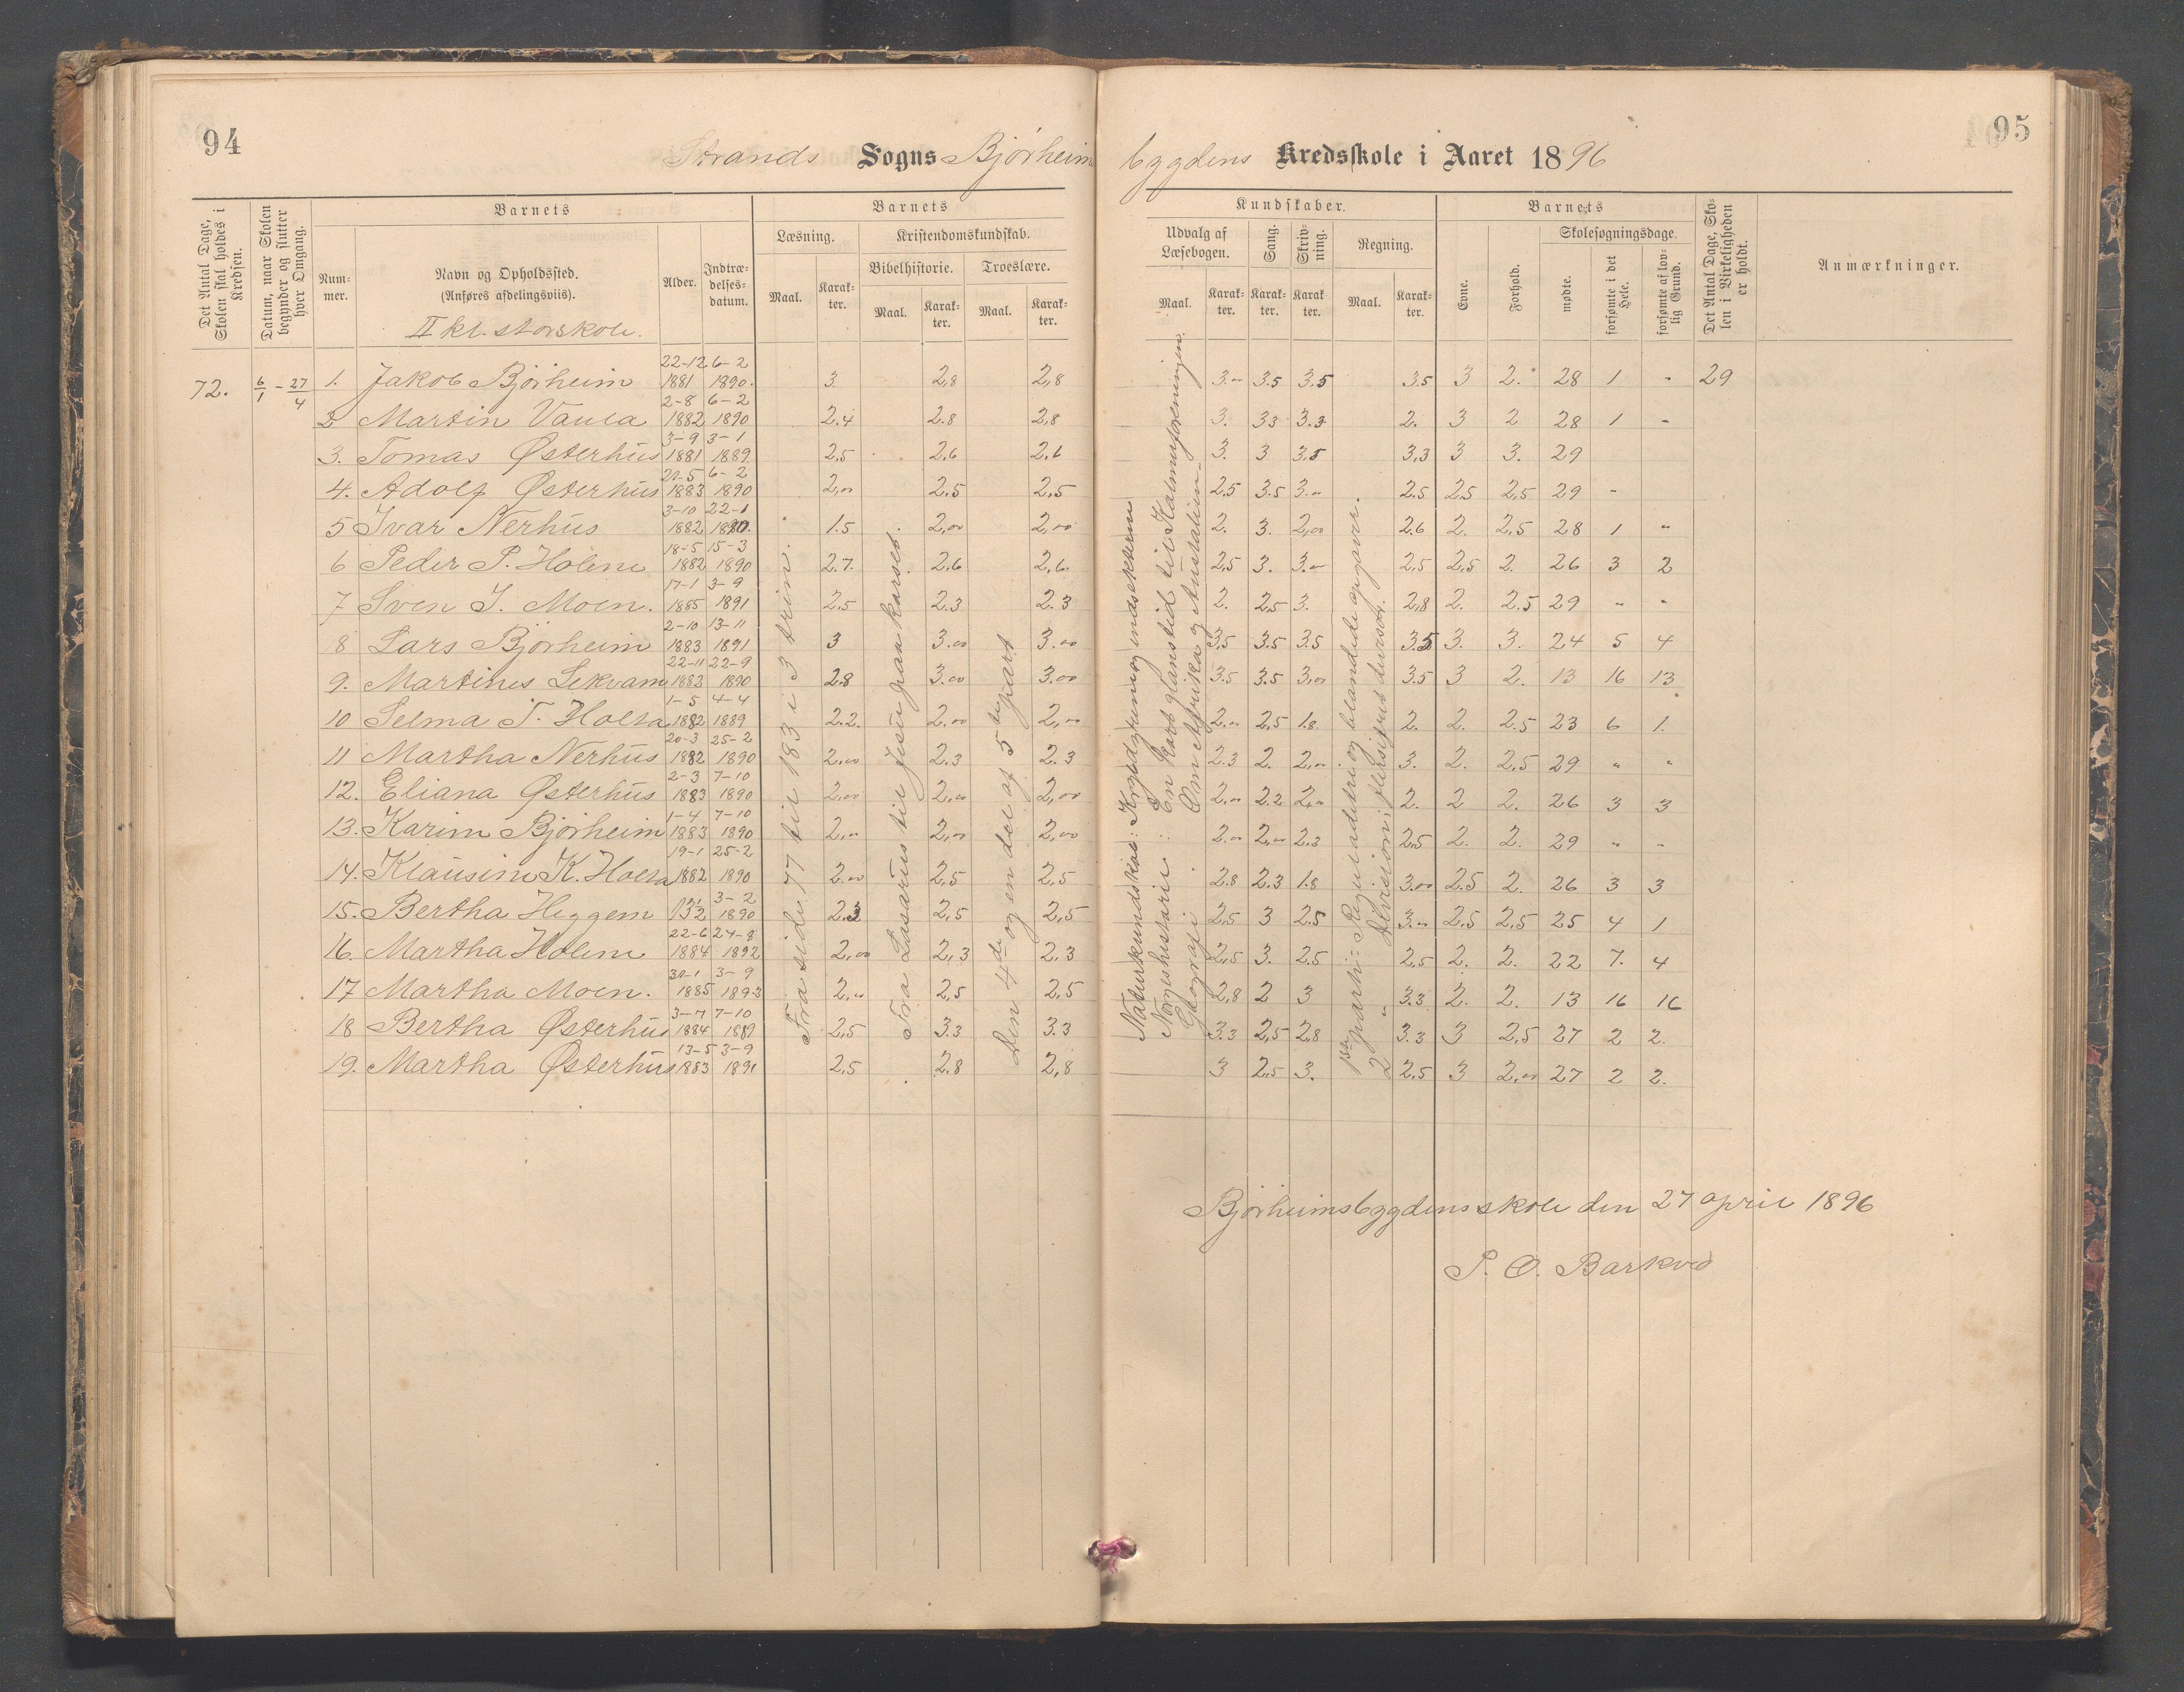 94
95
Strands Sogns Bjørheims bygdens Kredsskole i Aaret 1896
Det Antal Dage, Skolen skal holdes i Kredsen.
Datum, naar Skolen begynder og slutter hver Omgang.
Barnets
Nummer.
Navn og Opholdssted.
(Anføres afdelingsviis).
II kl. storskole.
Alder.
Indtrædelsesdatum.
Barnets
Læsning.
Maal.
Karakter.
Kristendomskundskab.
Bibelhistorie.
Maal.
Karakter.
Troeslære.
Maal.
Karakter.
Kundskaber.
Udvalg af Læsebogen.
Maal.
Karakter.
Sang.
Karakter.
Skrivning.
Karakter.
Regning.
Maal.
Karakter.
Barnets
Evne.
Forhold.
Skolesøgningsdage.
mødte.
forsømte i det Hele.
forsømte af lovlig Grund.
Det Antal Dage, Skolen i Virkeligheden er holdt.
Anmærkninger.
72. 6/1 - 27/4
1. Jakob Bjørheim 22-12 1881 6-2 1890. 3 2,8 2,8 3.00 3.5 3.5 3.5 3 2. 28 1 - 29
2 Martin Vaula 2-8 1882 6-2 1890 2.4 2.8 2,8 3. 3.3 3.3 2. 3 2 28 1 -
3. Tomas Østerhus 3-9 1881 3-1 1889. 2,5 2.6 2.6 3. 3 3,5 3,3 3 3. 29
4. Adolf Østerhus 20-5 1883 6-2 1890 2,00 2.5 2,5 2,5 3.5 3.00 2.5 2,5 2,5 29 -
5 Ivar Nerhus 3-10 1882 22-1 1890. 1.5 2,00 2,00 2. 3. 2,00 2.6 2. 2,5 28 1 "
6 Peder P. Holene 18-5 1882 15-3 1890 2.7. 2.6 2,6. 2,5 3. 3.00 2,5 2,5 2. 26 3 2
7 Sven I. Moen. 17-1 1885 3-9 1891 2,5 2.3 2.3 2. 2,5 3. 2,8 2. 2.5 29 " "
8 Lars Bjørheim 2-10 1883 13-11 1891 3 3.00 3.00 3,5 3.5 3.5 3.5 3. 3. 24 5 4
9. Martines Lekvam 22-11 1883 22-9 1890 2.8 3.00 3.00 3.5 3.5 3,00 3.5 3 2. 13 16 13
10 Selma T. Holta 1-5 1882 4-4 1889 2.2. 2.00 2,00 2.00 2,5 1.8 2. 2. 2.5 23 6 1.
11 Martha Nerhus 20-3 1882 25-2 1890 2,00 2.3 2.3 2.3 2. 2,00 3. 2. 2,5 29 " "
12. Eliana Østerhus 2-3 1883 7-10 1890 2,00 2,00 2,00 2,00 2.2 2,00 2. 2 2. 26 3 3
13. Karim Bjørheim 1-4 1883 7-10 1890 2,00 2,00 2,00 2.00 2,00 2.3 2,5 2. 2. 29 " "
14. Klausine K. Holta 19-1 1882 25-2 1890 2.00 2,5 2,5 2.8 2.3 1.8 3.00 2.5 2. 26 3 3
15. Bertha Heggem 3-2 1890 2.3 2,5 2,5 2,5 3 2.5 3.00 2,5 2,5 25 4 1
16. Martha Holene 22-6 1884 24-8 1892 2,00 2,3 2.3 2,5 3. 2.5 2,5 2. 2. 22 7. 4
17 Martha Moen. 30-1 1885 3-9 1893 2,00 2,5 2.5 2,8 2 3 3.3 2. 2. 13 16 16
18 Bertha Østerhus 3-7 1884 7-10 1889 2,5 3.3 3.3 3.3 2,5 2,8 3.3 3 2,5 27 2 2.
19. Martha Østerhus 13-5 1883 3-9 1891 2,5 2.8 2,8 3 2,5 3. 2,5 3 2,00 27 2 2.
Fra side 77 til 183 i 3 trin.
Fra Lasarus til Jesu paa korset
Den 4de og en del af 5te part
Naturkundskab: Krybdyrene og insekterne
Norgeshistorie: En kort glanstid til Kalmarforeningen.
Geografi: Om Afrika og Australien
1ste parti: Reguladetri og blandede opgaver.
2 " : Division; flersifret divisor.
Bjørheimsbygdens skole den 27 april 1896
P. O. Barkved